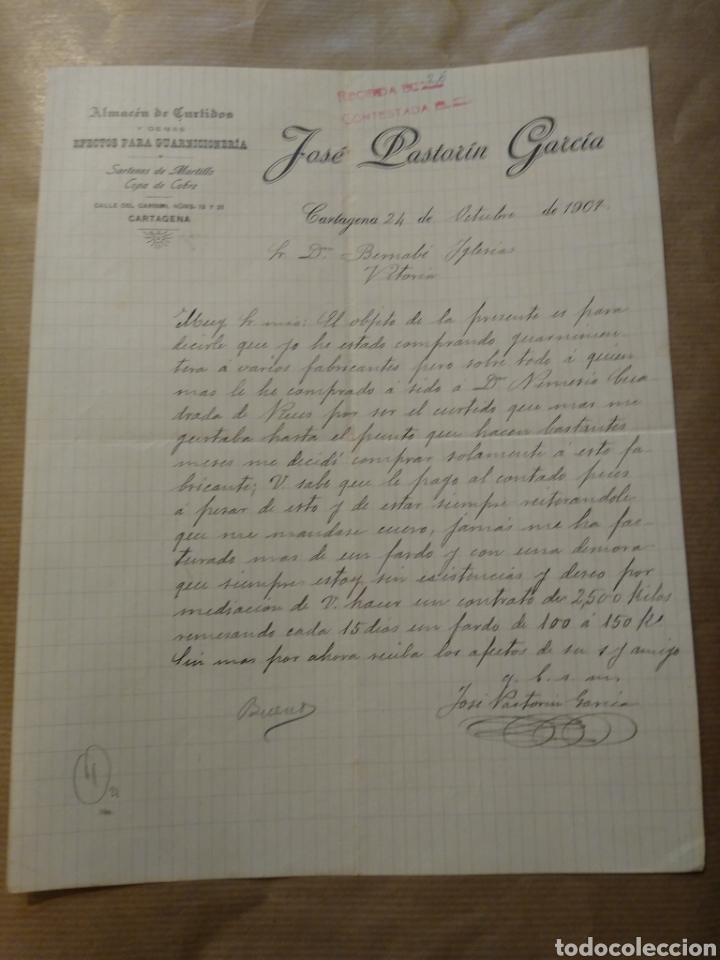 RECIBIDA EL 26
CONTESTADA EL
Almacén de Curtidos
Y DEMÁS
EFECTOS PARA GUARNICIONERÍA
Sartenes de Martillo
Copa de Cobre
CALLE DEL CARMEN, NÚMS. 19 Y 21
CARTAGENA
José Pastorín García
Cartagena 24 de Octubre de 1901.
Sr. Dn. Bernabé Iglesias
Vitoria
Muy Sr mio: El objeto de la presente es para
decirle que yo he estado comprando guarnicion
tera á varios fabricantes pero sobre todo á quien
mas le he comprado á sido á Dn Nemesio Cua
drada de Reus por ser el curtido que mas me
gustaba hasta el punto que hacen bastantes
meses me decidí comprar solamente á esto fa-
bricante; V. sabe que le pago al contado pues
á pesar de esto y de estar siempre reiterandole
que me mandase cuero, jamás me ha fac-
turado mas de un fardo y con una demora
que siempre estoy sin existencias y deseo por
mediacion de V. hacer un contrato de 2,500 kilos
remesando cada 15 dias un fardo de 100 á 150 Ks
Sin mas por ahora reciba los afectos de su s y amigo
q. b. s. m.
José Pastorin García
4
todocoleccion